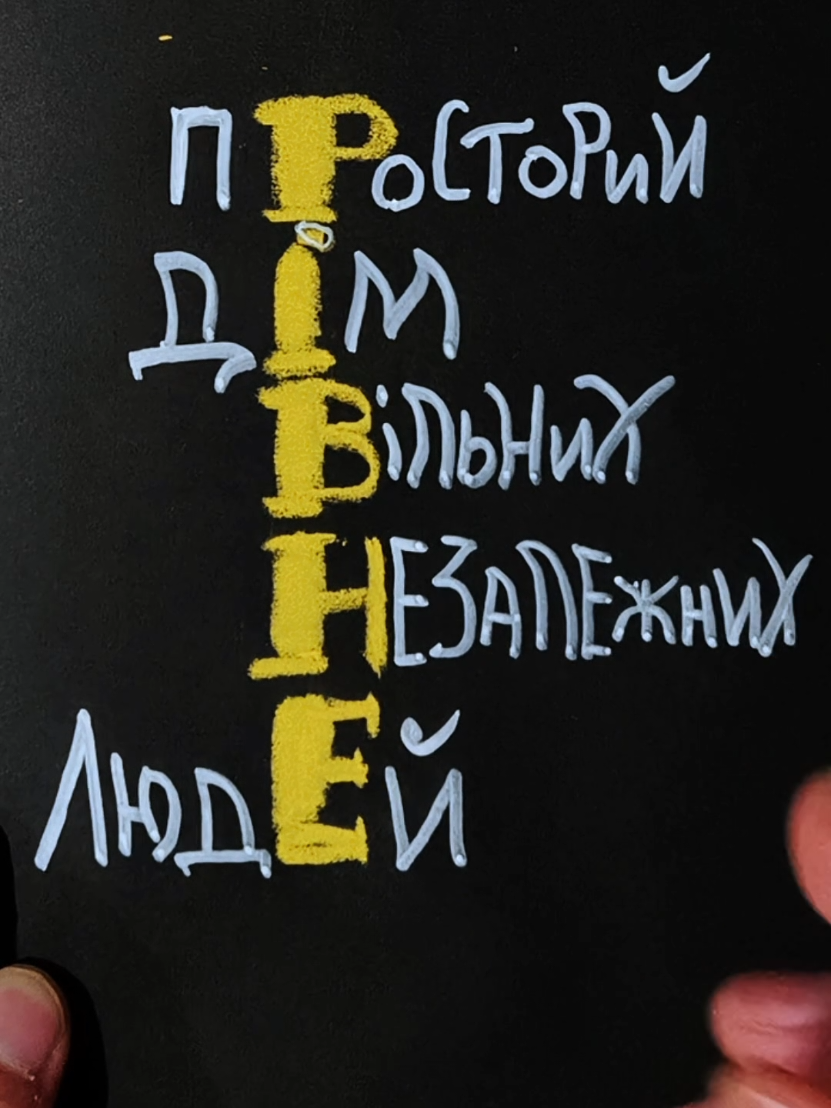 ПРОСТОРИЙ
ДІМ
ВІЛЬНИХ
НЕЗАЛЕЖНИХ
ЛЮДЕЙ